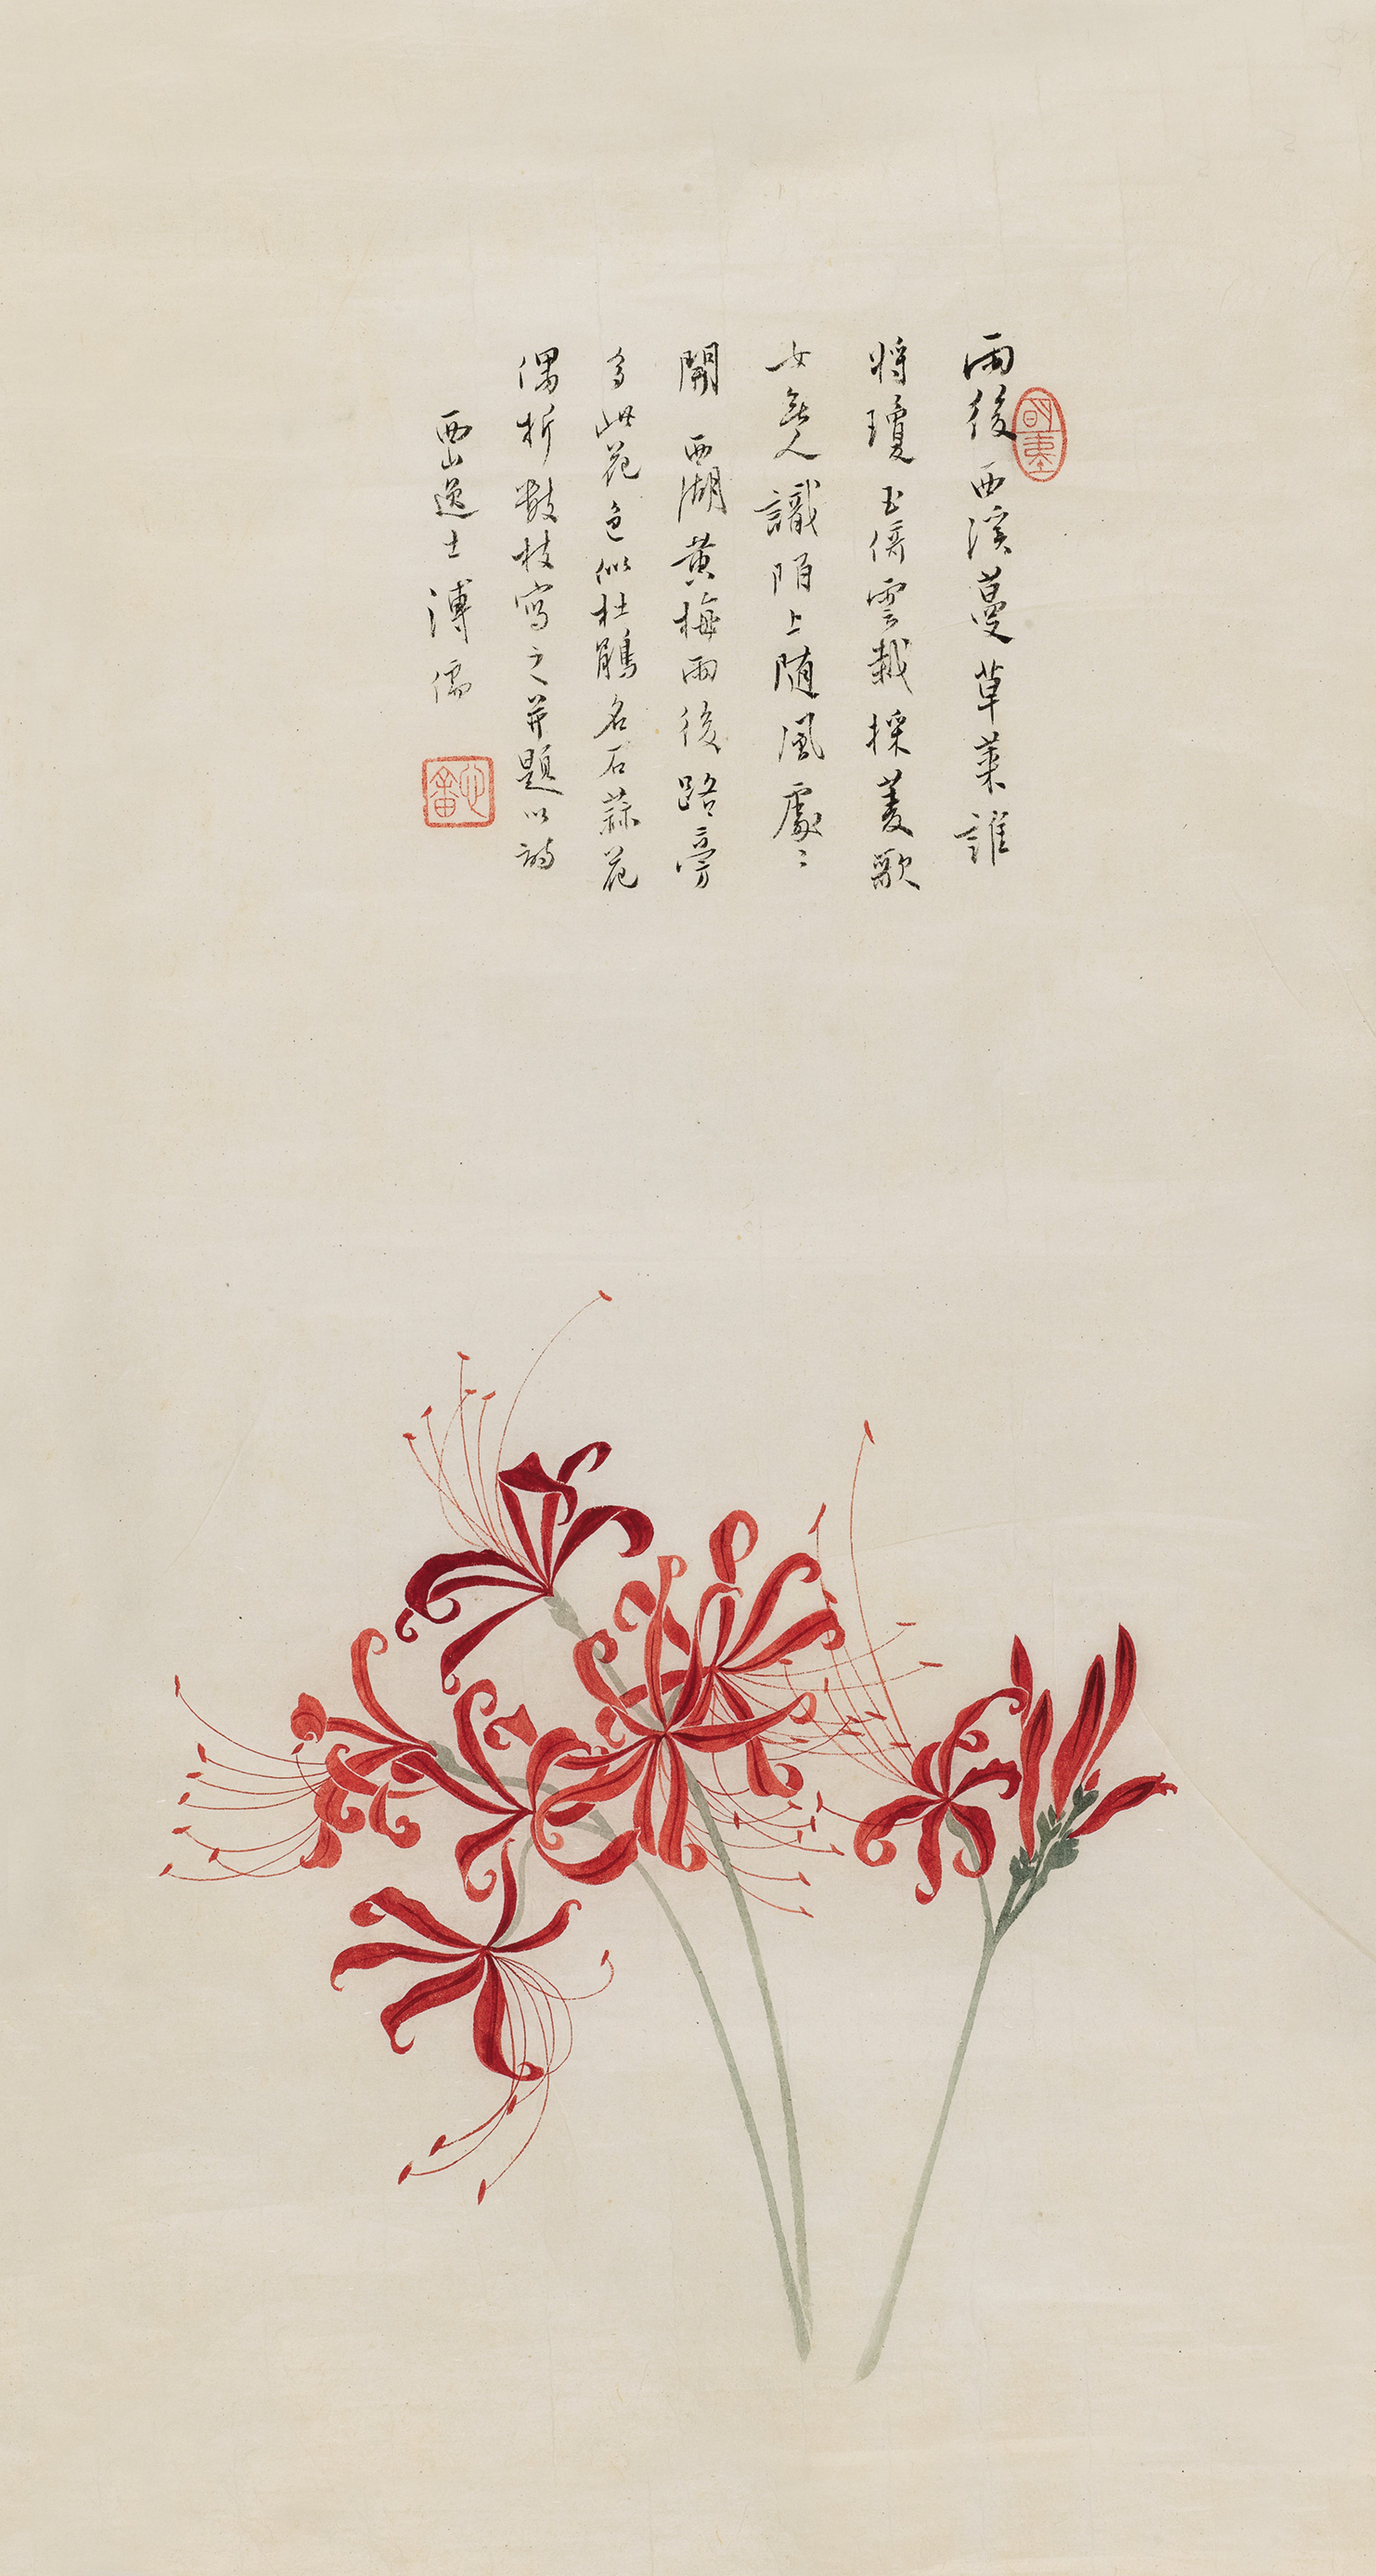 雨後西溪蔓草萊誰
將瓊玉倚雲栽採菱歌
女無人識陌上隨風處〻
開 西湖黃梅雨後路旁
多此花色似杜鵑名石蒜花
偶折數枝寫之并題以詩
西山逸士溥儒
心畬